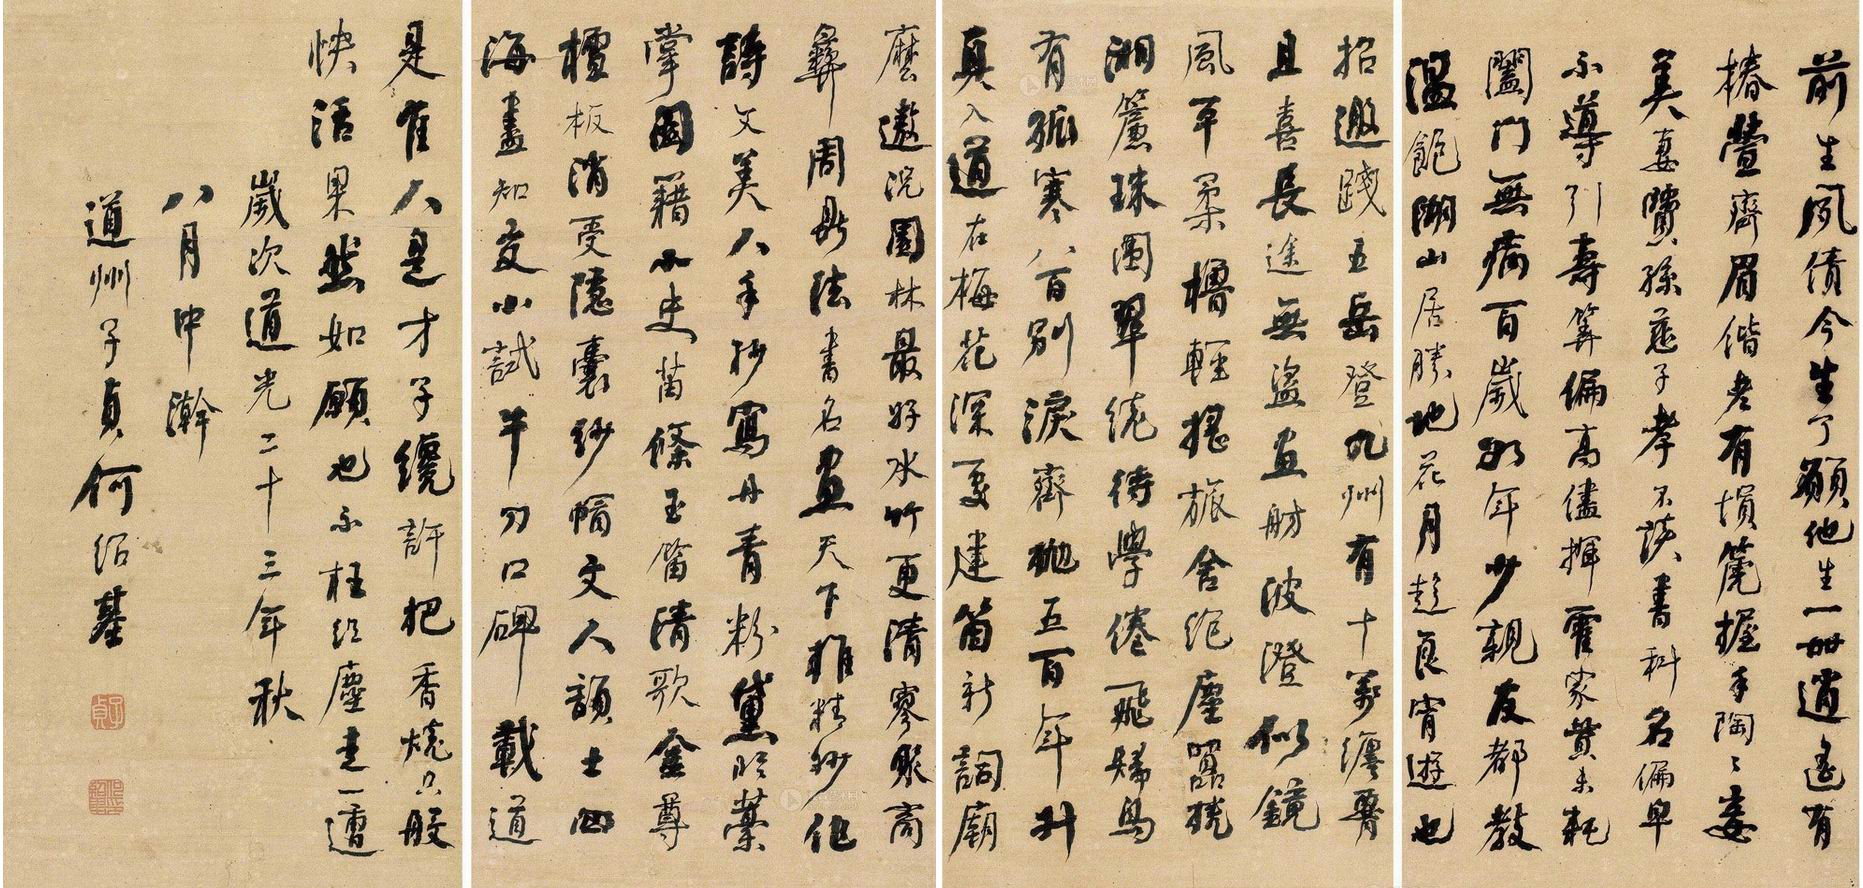 前生夙債今生了願他生一世逍遙有
椿萱齊眉偕老有塤篪握手陶陶妾
美妻賢孫慈子孝不談書科名偏早
不導引壽算偏高儘揮霍家貲未耗
闔門無病百歲如年少親友都教
溫飽湖山居勝地花月趁良宵遊也
招邀踐五岳登九州有十萬纏腰
且喜長途無盜畫舫波澄似鏡
風平柔櫓輕搖旅舍絕塵囂捲
湘簾珠圍翠繞待學倦飛歸鳥
有孤寒八百別淚齊拋五百年升
真入道在梅花深處建箇新詞廟
麼遨況園林最好水竹更清寥聚商
彝周鼎法書名畫天下推精妙作
詩文美人手抄寫丹青粉黛臨藁
掌圖籍小史苗條玉笛清歌金尊
檀板消受隱囊紗帽文人韻士四
海盡知交小試牛刀口碑載道
是隹人是才子纔許把香燒只般
快活果然如願也不枉紅塵走一遭
歲次道光二十三年秋
八月中澣
道州子貞何紹基
子貞